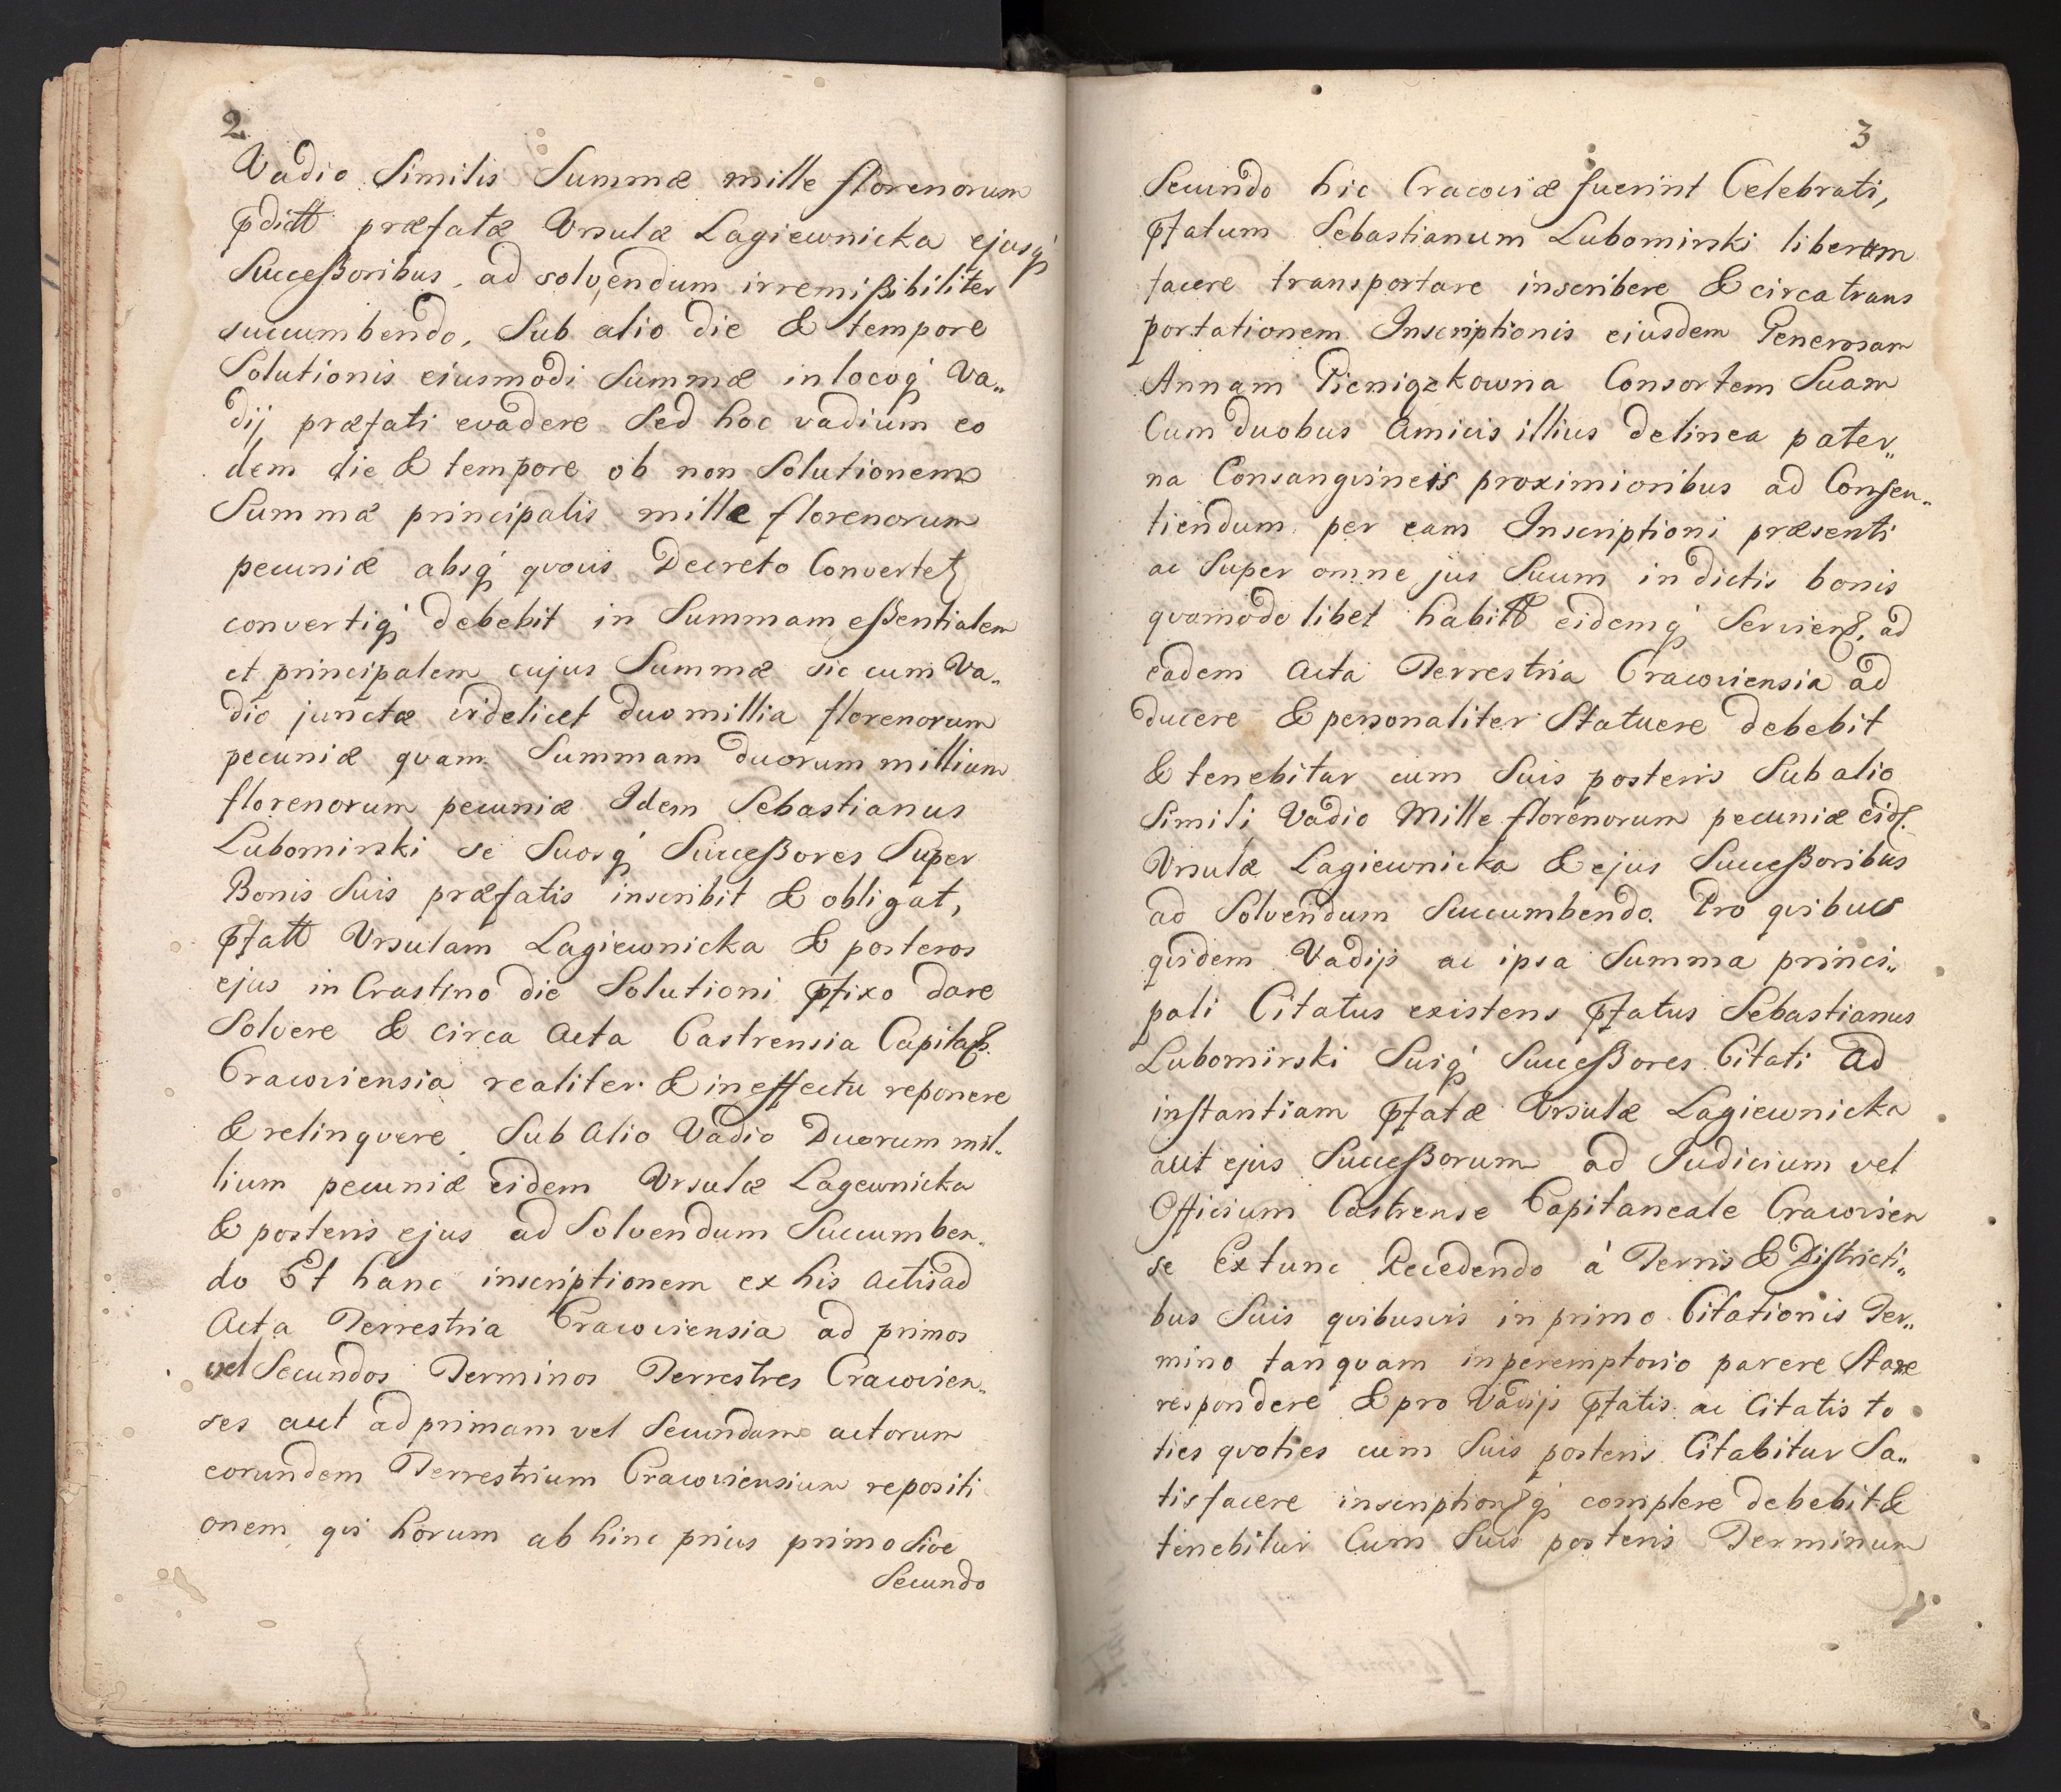 2
Vadio Similis Summæ mille florenorum
pditt præfatæ Vrsulæ Lagiewnicka ejusq́
Succeßoribus, ad solvendum irremißibiliter
succumbendo, Sub alio die & tempore
Solutionis eiusmodi Summæ in locoq́ Va„
dij præfati evadere Sed hoc vadium eo
dem die & tempore ob non Solutionem
Summæ principalis mille florenorum
pecuniæ absq́ quovis Decreto Convertet̃
convertiq́ debebit in Summam eßentialem
et principalem cujus Summæ sic cum Va„
dio junctæ videlicet duo millia florenorum
pecuniæ quam Summam duorum millium
florenorum pecuniæ Idem Sebastianus
Lubomirski se Suosq́ Succeßores Super
Bonis Suis præfatis inscribit & obligat,
pfatt Vrsulam Lagiewnicka & posteros
ejus in Crastino die Solutioni pfixo dare
Solvere & circa Acta Castrensia Capitan.
Cracoviensia realiter & in effectu reponere
& relinqvere, Sub Alio Vadio Duorum mil„
lium pecuniæ eidem Vrsulæ Lagewnicka
& posteris ejus ad Solvendum Succumben„
do Et hanc inscriptionem ex his Actis ad
Acta Terrestria Cracoviensia ad primos
vel Secundos Terminos Terrestres Cracovien„
ses aut ad primam vel Secundam actorum
eorundem Terrestrium Cracoviensium repositi
onem, qui horum ab hinc prius primo Sive
Secundo
3
Secundo hic Cracoviæ fuerint Celebrati,
pfatum Sebastianum Lubomirski liberam
facere transportare inscribere & circa trans
portationem Inscriptionis eiusdem Generosam
Annam Pieniązkowna Consortem Suam
Cum duobus Amicis illius de linea pater„
na Consangvineis proximioribus ad Consen„
tiendum per eam Inscriptioni præsenti
ac Super omne jus Suum in dictis bonis
qvomodo libet habitt eidemq́ Servien, ad
eadem Acta Terrestria Cracoviensia ad
ducere & personaliter Statuere debebit
& tenebitur cum Suis posteris Sub alio
Simili Vadio Mille florenorum pecuniæ eid.
Vrsulæ Lagiewnicka & ejus Succeßoribus
ad Solvendum Succumbendo. Pro qvibus
qvidem Vadijs ac ipsa Summa princi„
pali Citatus existens pfatus Sebastianus
Lubomirski Suiq́ Succeßores Citati Ad
instantiam pfatæ Vrsulæ Lagiewnicka
aut ejus Succeßorum ad Judicium vel
Officium Castrense Capitaneale Cracovien
se Extunc Recedendo à Terris & Districti„
bus Suis qvibusvis in primo Citationis Ter„
mino tanquam in peremptorio parere Stare
respondere & pro Vadijs pfatis ac Citatis to
ties qvoties cum Suis posteris Citabitur Sa„
tisfacere inscriptionq́ complere debebit &
tenebitur Cum Suis posteris Terminum